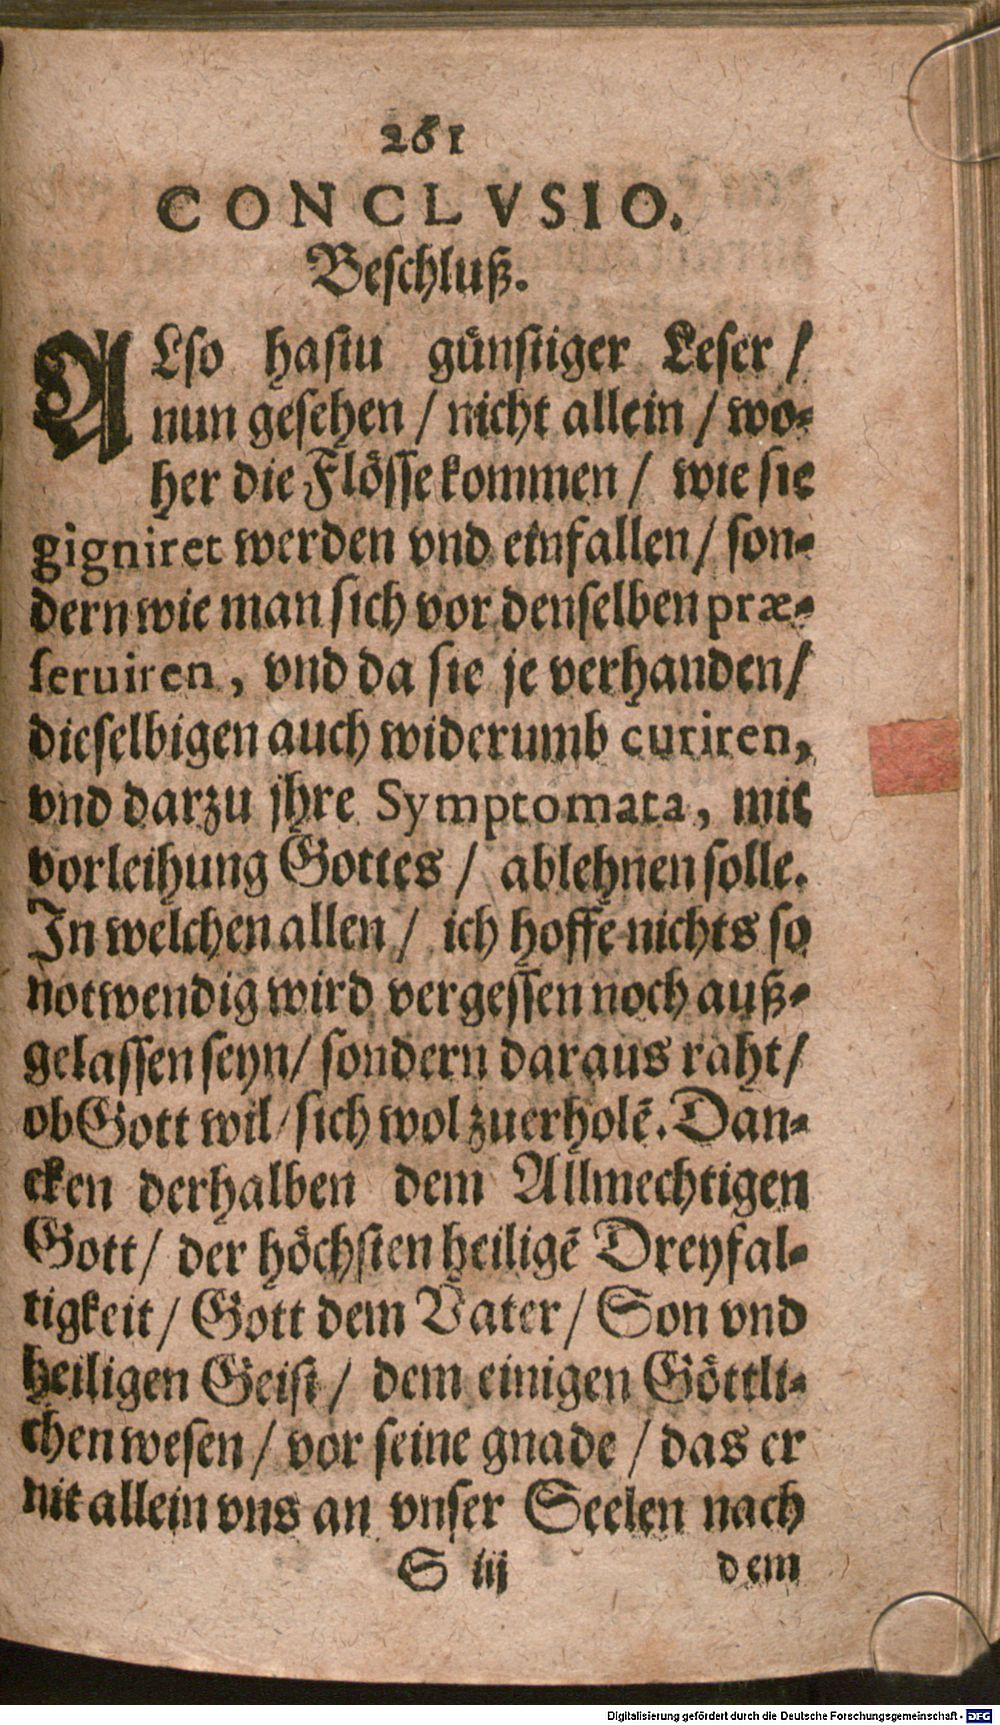 261
CONCLVSIO.
Beschluß.
ALso hastu günstiger Leser /
nun gesehen / nicht allein / wo-
her die Flösse kommen / wie sie
gigniret werden vnd einfallen / son-
dern wie man sich vor denselben præ-
seruiren, vnd da sie je verhanden /
dieselbigen auch widerumb curiren,
vnd darzu jhre Symptomata, mit
vorleihung Gottes / ablehnen solle.
In welchen allen / ich hoffe nichts so
notwendig wird vergessen noch auß-
gelassen seyn / sondern daraus raht /
ob Gott wil / sich wol zuerholẽ. Dan-
cken derhalben dem Allmechtigen
Gott / der höchsten heiligẽ Dreyfal-
tigkeit / Gott dem Vater / Son vnd
heiligen Geist / dem einigen Göttli-
chen wesen / vor seine gnade / das er
nit allein vns an vnser Seelen nach
S iij dem
Digitalisierung gefördert durch die Deutsche Forschungsgemeinschaft - DFG